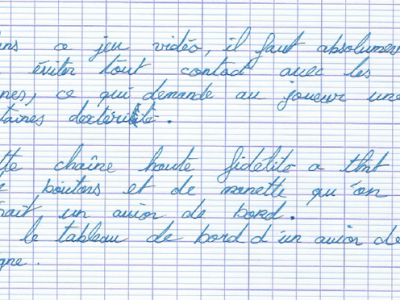 ns ce jeu vidéo, il faut absolumen
éviter tout contact avec les
nes, ce qui demande au joueur une
taines dextérité.
tte chaîne haute fidélité a tant
boutons et de manette qu'on
rait un avion de bord.
le tableau de bord d'un avion de
gne.